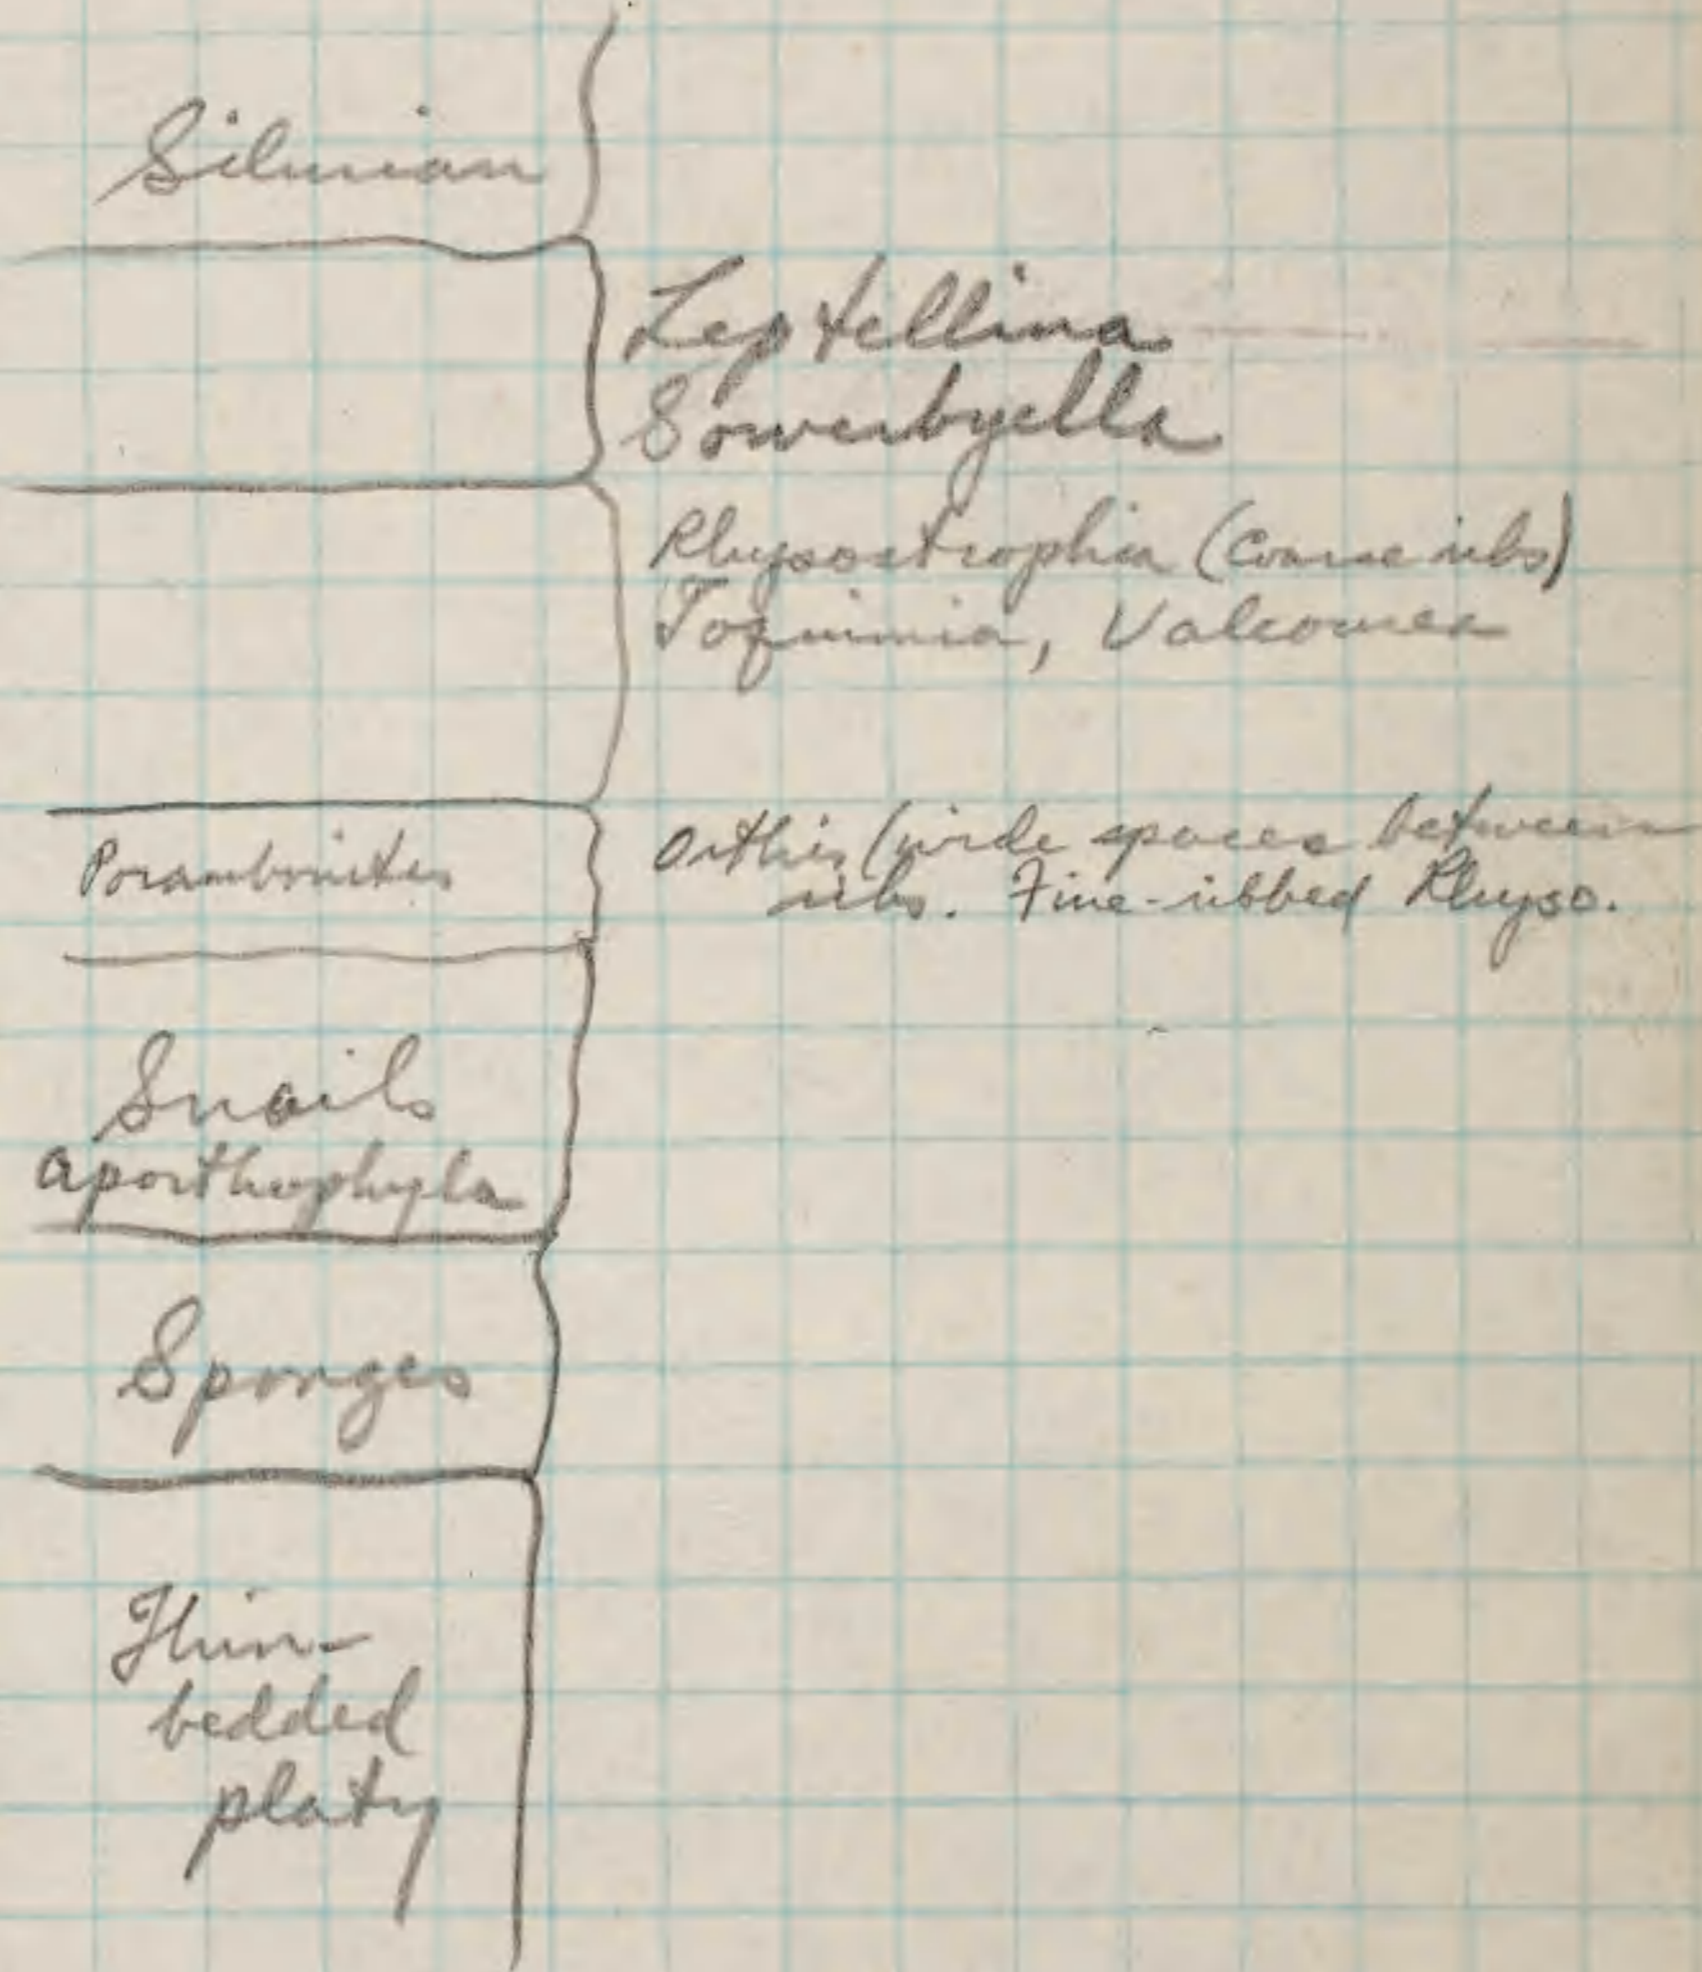 Silurian
Leptellina
Sowerbyella
Rhysostrophia (coarse ribs)
Toquimia, Valcourea
Porambonites
Orthis (wide spaces between
ribs. Fine-ribbed Rhyso.
Snails
Aporthophyla
Sponges
Thin-
bedded
platy